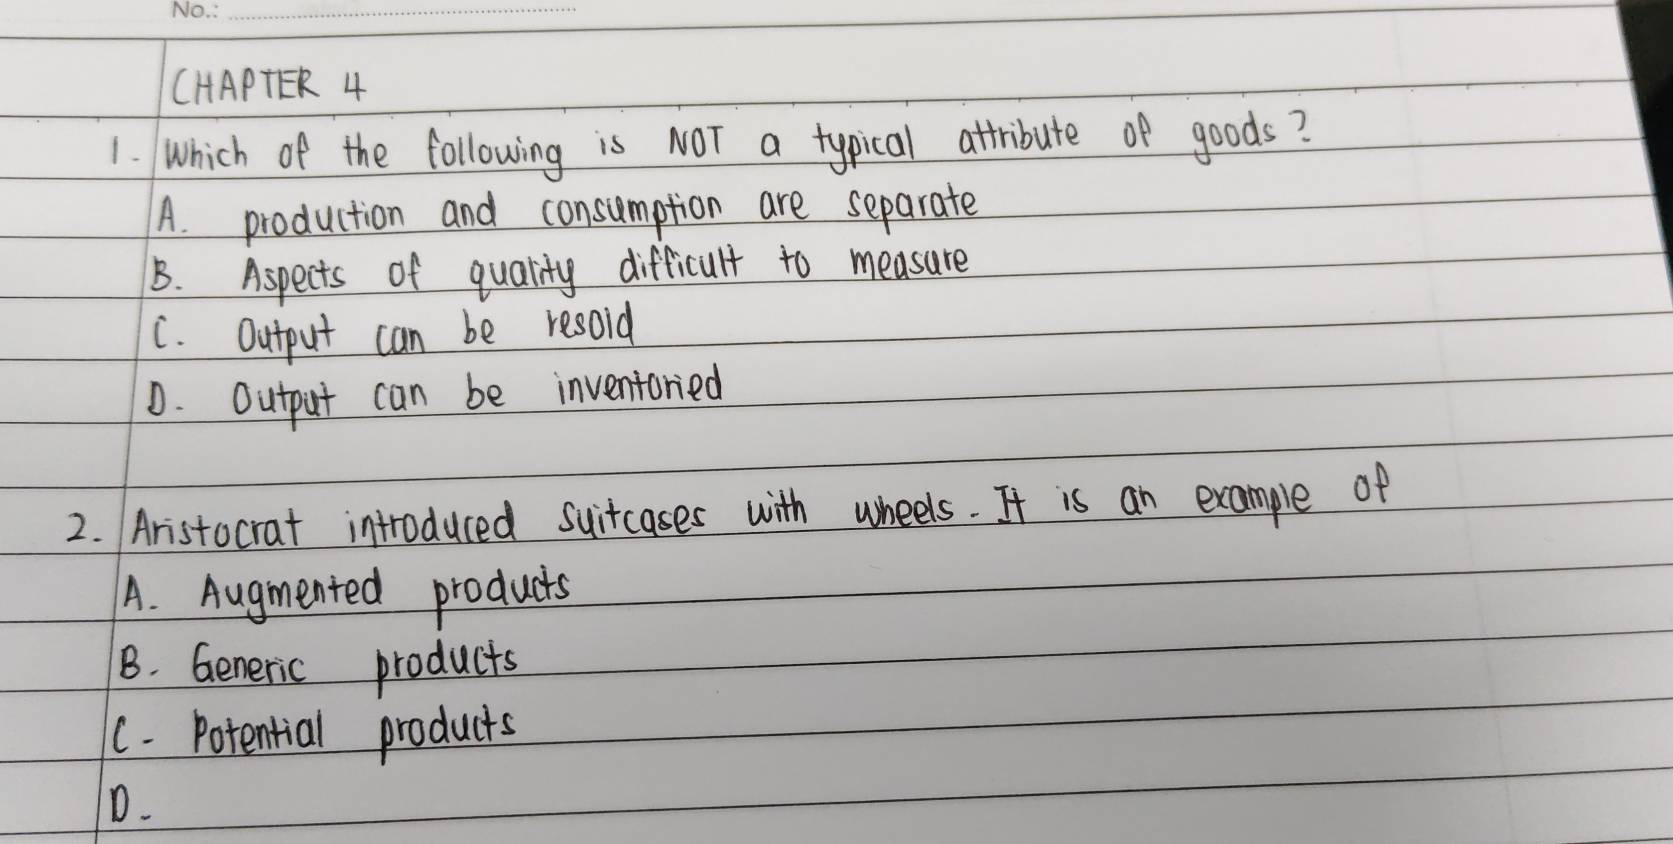 No.:
CHAPTER 4
1. Which of the following is NOT a typical attribute of goods?
A. production and consumption are separate
B. Aspects of quality difficult to measure
C. Output can be resold
D. Output can be inventoried
2. Aristocrat introduced suitcases with wheels. It is an example of
A. Augmented products
B. Generic products
C. Potential products
D.